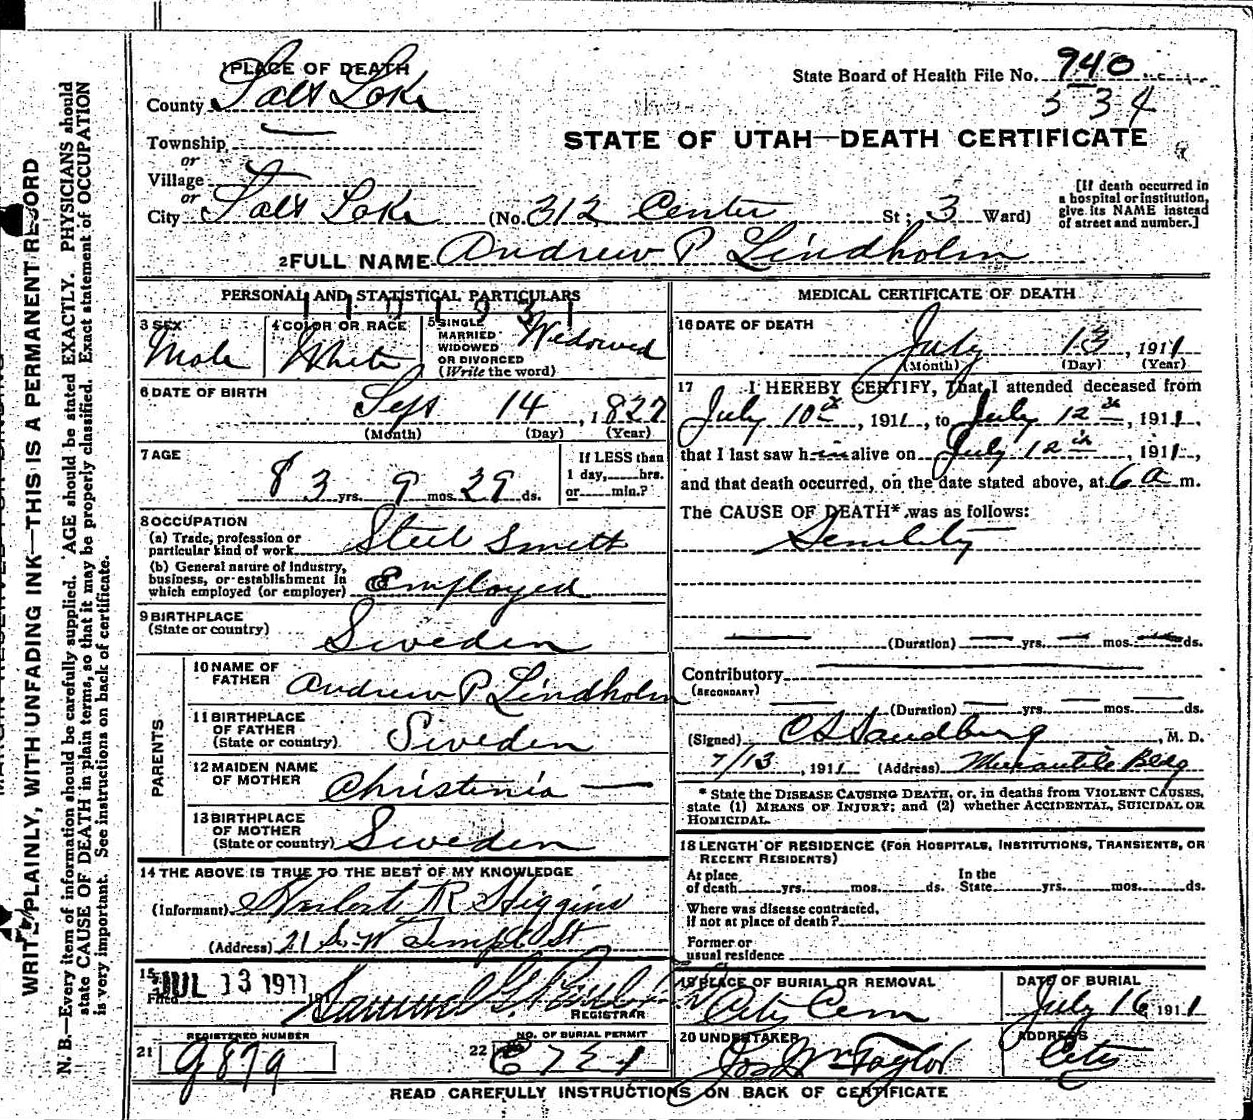 1 PLACE OF DEATH
County Salt Lake
Township
or
Village
or
City Salt Lake (No. 312 Center St; 3 Ward)
State Board of Health File No. 940
534
STATE OF UTAH—DEATH CERTIFICATE
[If death occurred in
a hospital or institution,
give its NAME instead
of street and number.]
2 FULL NAME Andrew P Lindholm
PERSONAL AND STATISTICAL PARTICULARS
3 SEX
Male
4 COLOR OR RACE
White
5 SINGLE
MARRIED
WIDOWED
OR DIVORCED
(Write the word)
Widowed
6 DATE OF BIRTH
Sept 14, 1827
(Month) (Day) (Year)
7 AGE
83 yrs. 9 mos. 29 ds.
If LESS than
1 day, hrs.
or min.?
8 OCCUPATION
(a) Trade, profession or
particular kind of work Steel Smith
(b) General nature of industry,
business, or establishment in
which employed (or employer) Employed
9 BIRTHPLACE
(State or country) Sweden
PARENTS
10 NAME OF
FATHER Andrew P Lindholm
11 BIRTHPLACE
OF FATHER
(State or country) Sweden
12 MAIDEN NAME
OF MOTHER Christenia —
13 BIRTHPLACE
OF MOTHER
(State or country) Sweden
14 THE ABOVE IS TRUE TO THE BEST OF MY KNOWLEDGE
(Informant) Herbert R Higgins
(Address) 21 So. W Temple St
15
Filed JUL 13 1911 191
Samuel G.
REGISTRAR
REGISTERED NUMBER
21 g879
NO. OF BURIAL PERMIT
22
MEDICAL CERTIFICATE OF DEATH
16 DATE OF DEATH
July 13, 1911
(Month) (Day) (Year)
17 I HEREBY CERTIFY, That I attended deceased from
July 10th, 1911, to July 12th, 1911,
that I last saw him alive on July 12th, 1911,
and that death occurred, on the date stated above, at 6 a m.
The CAUSE OF DEATH* was as follows:
Senility
(Duration) yrs. mos. ds.
Contributory
(SECONDARY)
(Duration) yrs. mos. ds.
(Signed) C L Sandberg, M. D.
7/13, 1911 (Address) Mercantile Bldg
* State the DISEASE CAUSING DEATH, or, in deaths from VIOLENT CAUSES,
state (1) MEANS OF INJURY; and (2) whether ACCIDENTAL, SUICIDAL OR
HOMICIDAL.
18 LENGTH OF RESIDENCE (FOR HOSPITALS, INSTITUTIONS, TRANSIENTS, OR
RECENT RESIDENTS)
At place
of death yrs. mos. ds.
In the
State yrs. mos. ds.
Where was disease contracted,
if not at place of death?
Former or
usual residence
19 PLACE OF BURIAL OR REMOVAL
City Cem
DATE OF BURIAL
July 16 1911
20 UNDERTAKER
Jos Wm Taylor
ADDRESS
City
READ CAREFULLY INSTRUCTIONS ON BACK OF CERTIFICATE
WRITE PLAINLY, WITH UNFADING INK—THIS IS A PERMANENT RECORD
N. B.—Every item of information should be carefully supplied. AGE should be stated EXACTLY. PHYSICIANS should
state CAUSE OF DEATH in plain terms, so that it may be properly classified. Exact statement of OCCUPATION
is very important. See instructions on back of certificate.